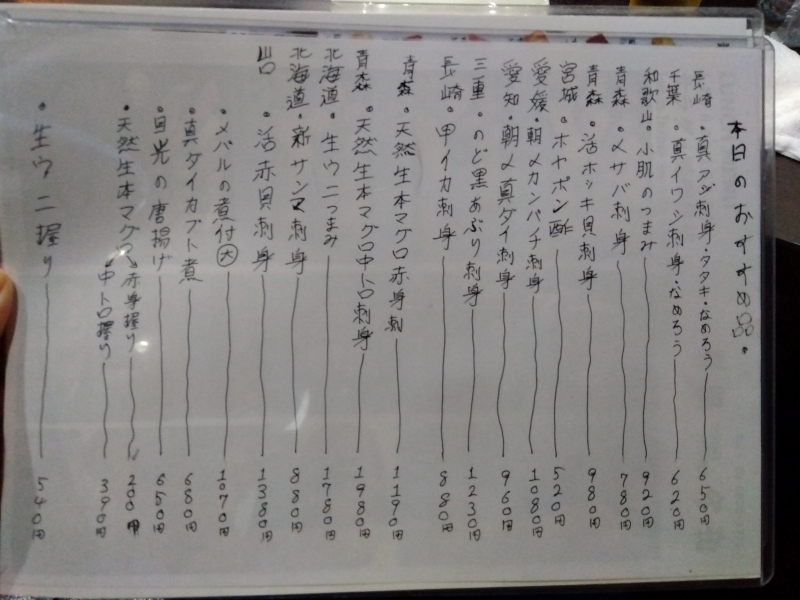 本日のおすすめ品。
長崎 ・真アジ刺身・タタキ・なめろう 650円
千葉 ・真イワシ刺身・なめろう 620円
和歌山・小肌のつまみ 920円
青森 ・〆サバ刺身 780円
青森 ・活ホッキ貝刺身 980円
宮城 ・ホヤポン酢 520円
愛媛・朝〆カンパチ刺身 1080円
愛知・朝〆真ダイ刺身 960円
三重・のど黒あぶり刺身 1230円
長崎・甲イカ刺身 880円
青森・天然生本マグロ赤身刺 1190円
青森・天然生本マグロ中トロ刺身 1980円
北海道・生ウニつまみ 1780円
北海道・新サンマ刺身 880円
山口・活赤貝刺身 1380円
・メバルの煮付(大) 1070円
・真ダイカブト煮 680円
・目光の唐揚げ 650円
・天然生本マグロ赤身握り 200円
中トロ握り 390円
・生ウニ握り 540円